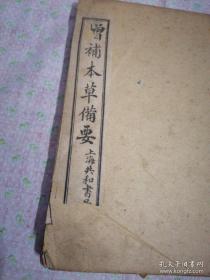 曾補本草備要
上海共和書局
孔夫子旧书网